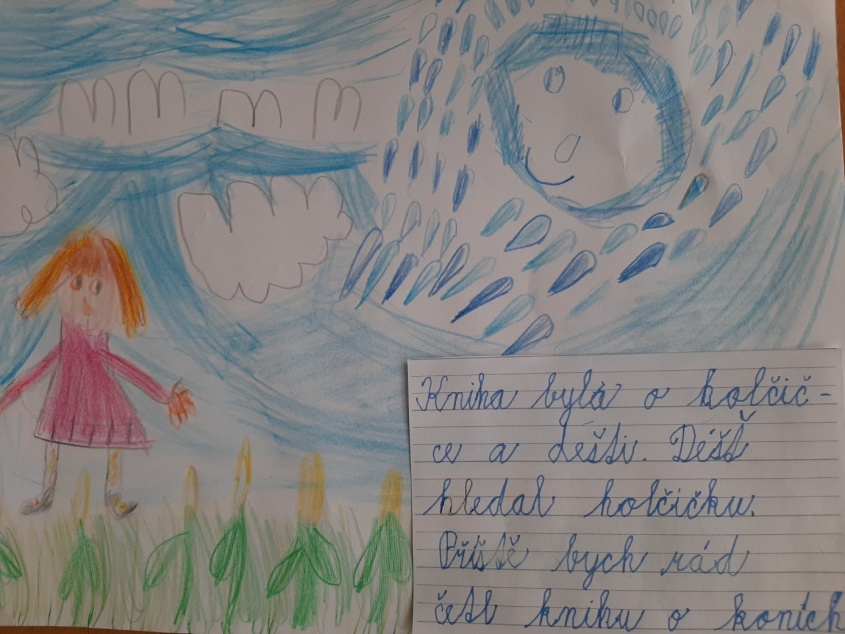 Kniha byla o holčič-
ce a dešti. Déšť
hledal holčičku.
Příště bych rád
četl knihu o koních